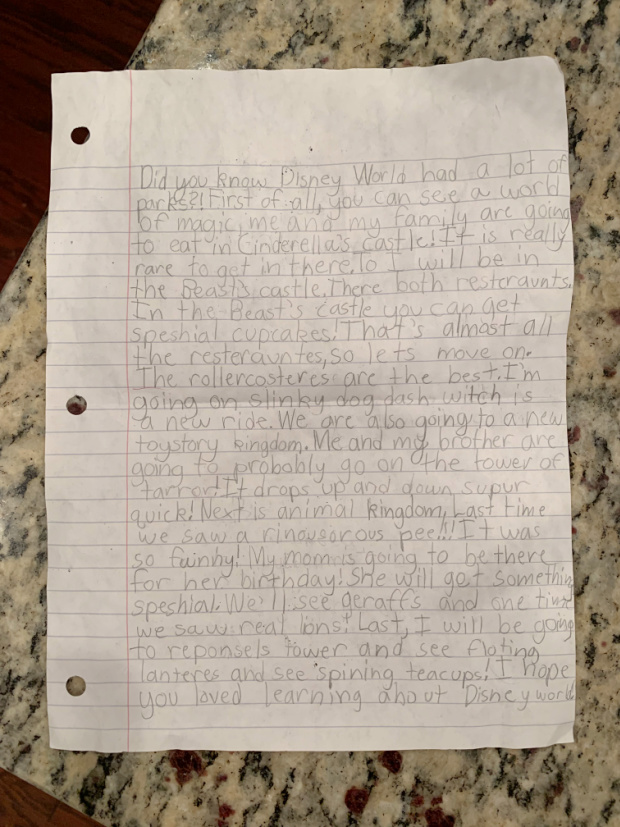 Did you know Disney World had a lot of
parks?! First of all, you can see a world
of magic, me and my family are going
to eat in Cinderella's castle! It is really
rare to get in there. To I will be in
the Beast's castle. There both resteraunts.
In the Beast's castle you can get
speshial cupcakes! That's almost all
the resterauntes, so lets move on.
The rollercosteres are the best. I'm
going on slinky dog dash witch is
a new ride. We are also going to a new
toystory kingdom. Me and my brother are
going to probably go on the tower of
tarror! It drops up and down supur
quick! Next is animal kingdom, Last time
we saw a rinousorous pee!!! It was
so fainny! My mom is going to be there
for her birthday! She will get something
speshial. We'll see geraffs and one time
we saw real lions! Last, I will be going
to reponsels tower and see floting
lanteres and see spining teacups! I hope
you loved learning about Disneyworld